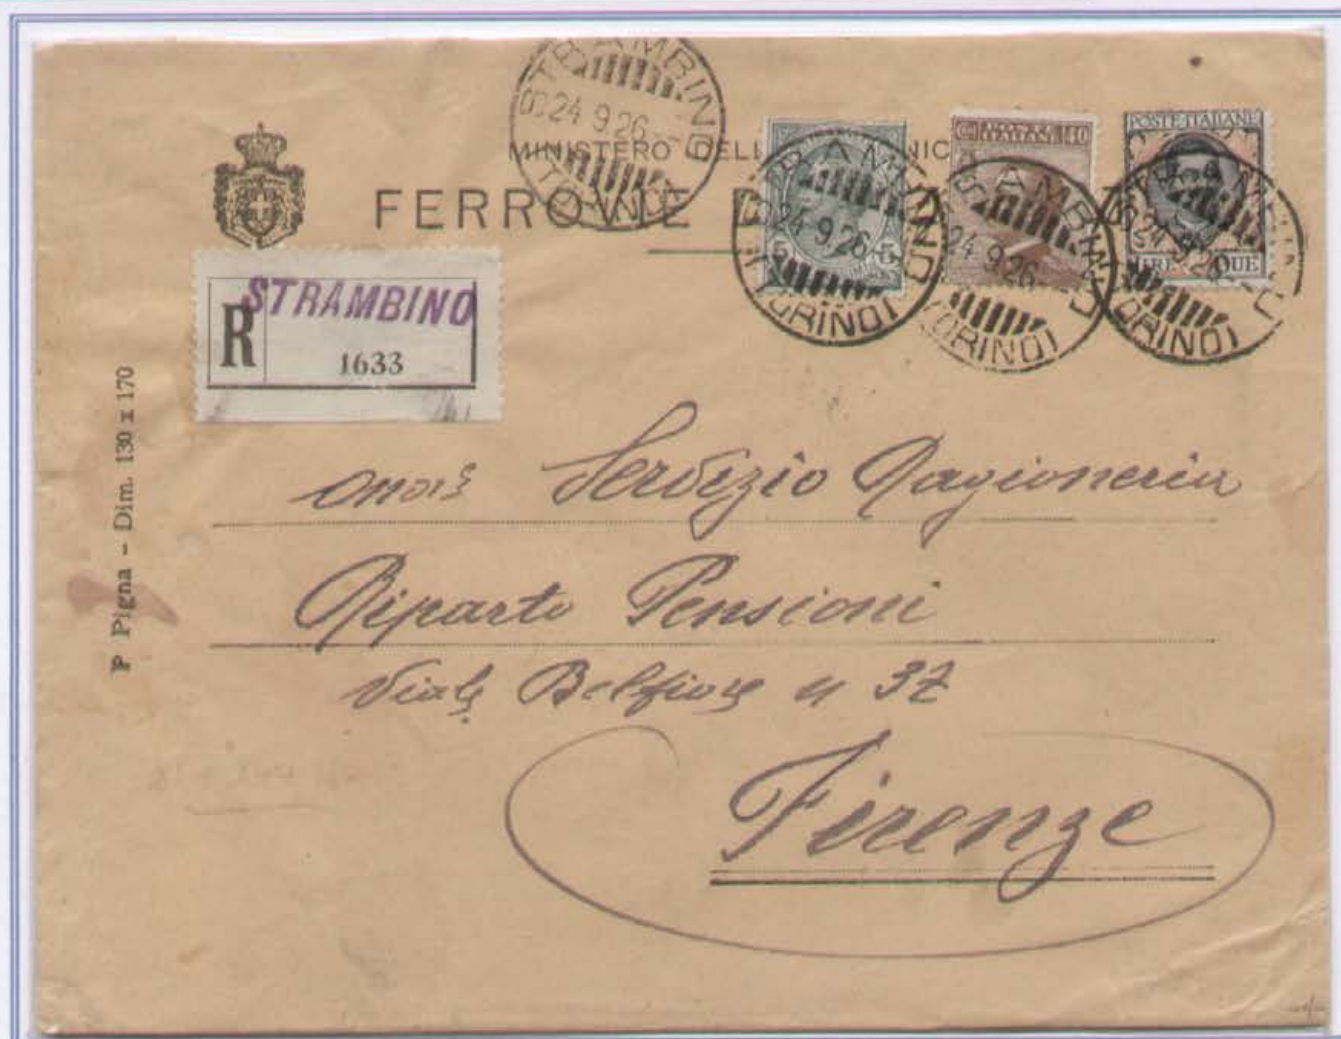 STRAMBINO
24 9 26
(TORINO)
MINISTERO DELL NIC
FERROVIE D
5 5
STRAMBINO
24 9 26
(TORINO)
40
STRAMBINO
24 9 26
(TORINO)
POSTE ITALIANE
LIRE DUE
24 9 26
(TORINO)
R STRAMBINO
1633
P Pigna - Dim. 130 x 170
Servizio Ragioneria
Riparto Pensioni
Viale Belfiore n 37
Firenze